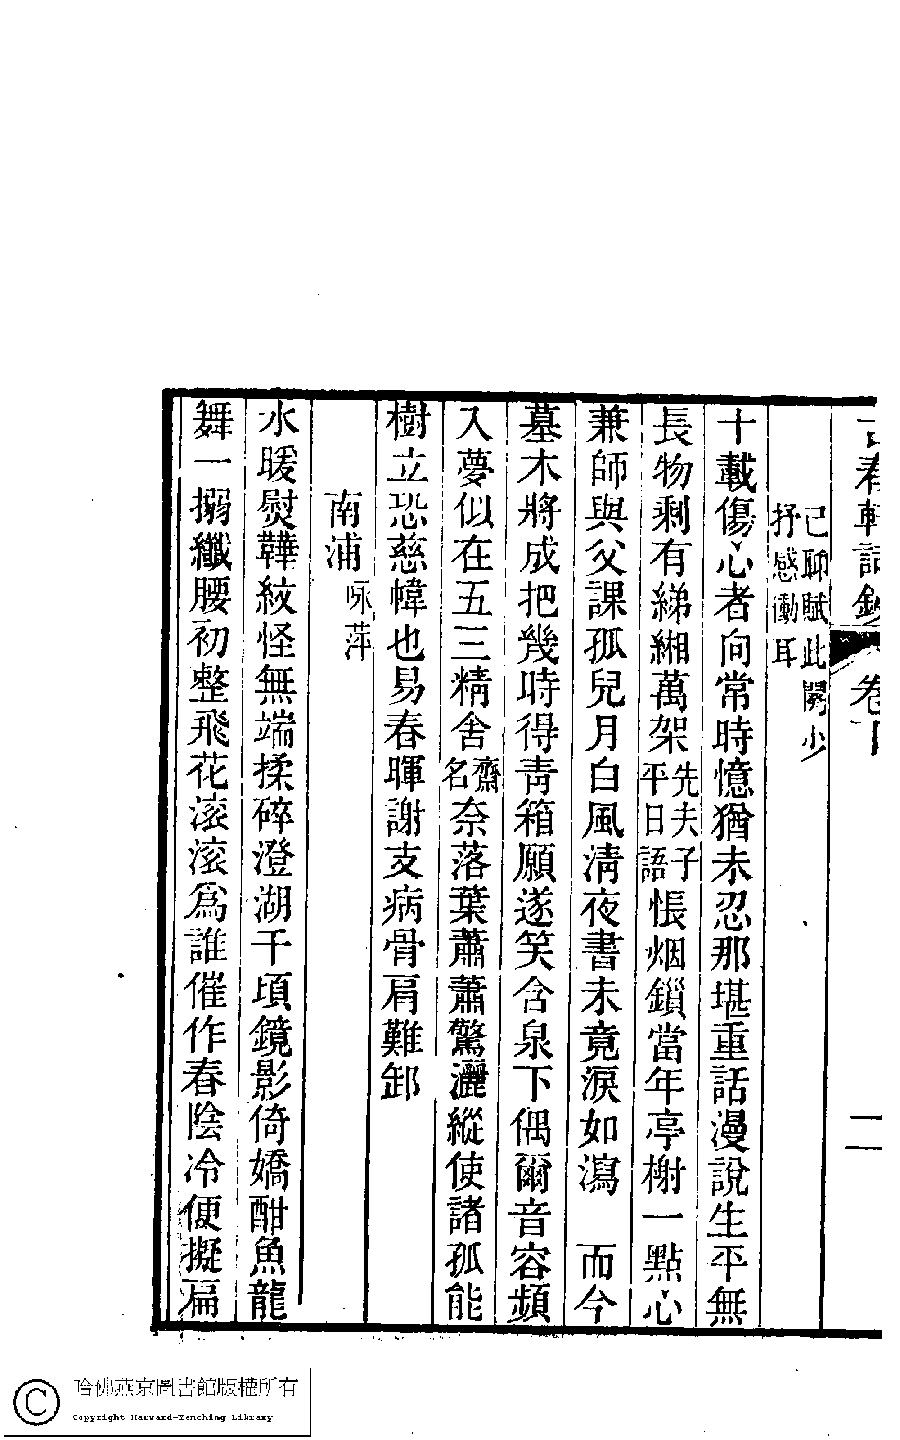 古春軒詞鈔 卷下 二
已聊賦此闋少
抒感慟耳
十載傷心者向常時憶猶未忍那堪重話漫說生平無
長物剩有綈緗萬架先夫子平日語悵烟鎖當年亭榭一點心
兼師與父課孤兒月白風淸夜書未竟淚如瀉　而今
墓木將成把幾時得靑箱願遂笑含泉下偶爾音容頻
入夢似在五三精舍齋名奈落葉蕭蕭驚灑縱使諸孤能
樹立恐慈幃也易春暉謝支病骨肩難卸
南浦 咏萍
水暖熨鞾紋怪無端揉碎澄湖千頃鏡影倚嬌酣魚龍
舞一搦纖腰初整飛花滚滚爲誰催作春陰冷便擬扁
哈佛燕京圖書館版權所有
Copyright Harvard-Yenching Library